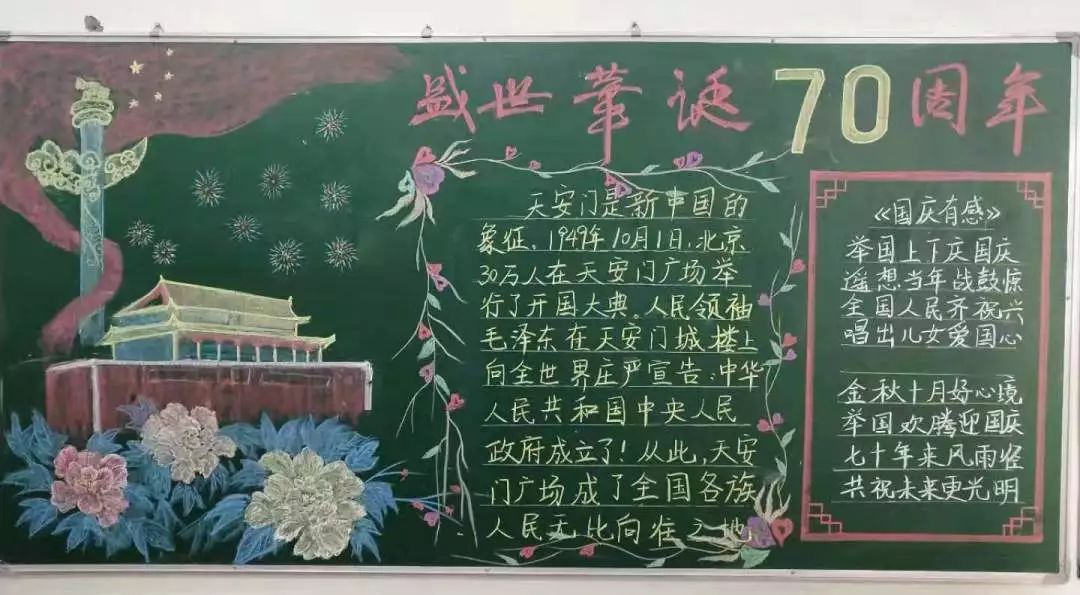 盛世華诞70周年
天安门是新中国的
象征，1949年10月1日，北京
30万人在天安门广场举
行了开国大典。人民领袖
毛泽东在天安门城楼上
向全世界庄严宣告：中华
人民共和国中央人民
政府成立了！从此，天安
门广场成了全国各族
人民无比向往之地
《国庆有感》
举国上下庆国庆
遥想当年战鼓惊
全国人民齐祝兴
唱出儿女爱国心
金秋十月好心境
举国欢腾迎国庆
七十年来风雨径
共祝未来更光明